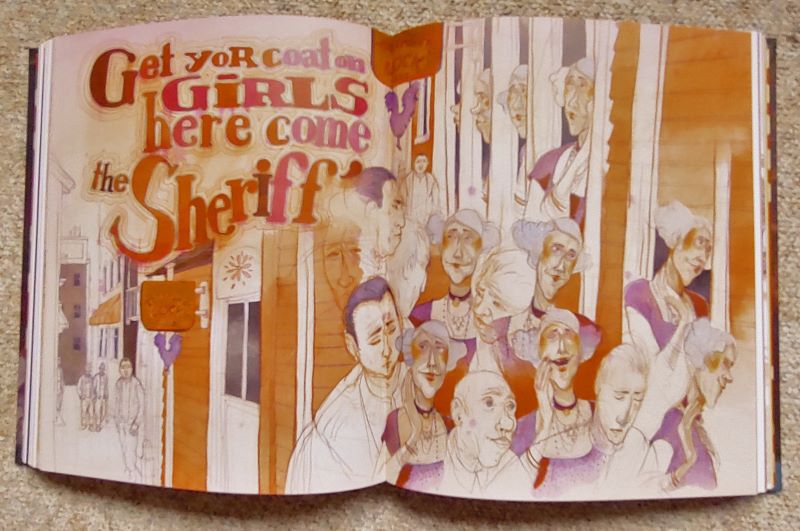 Get yoR coat on
GiRLS
here come
the Sheriff'